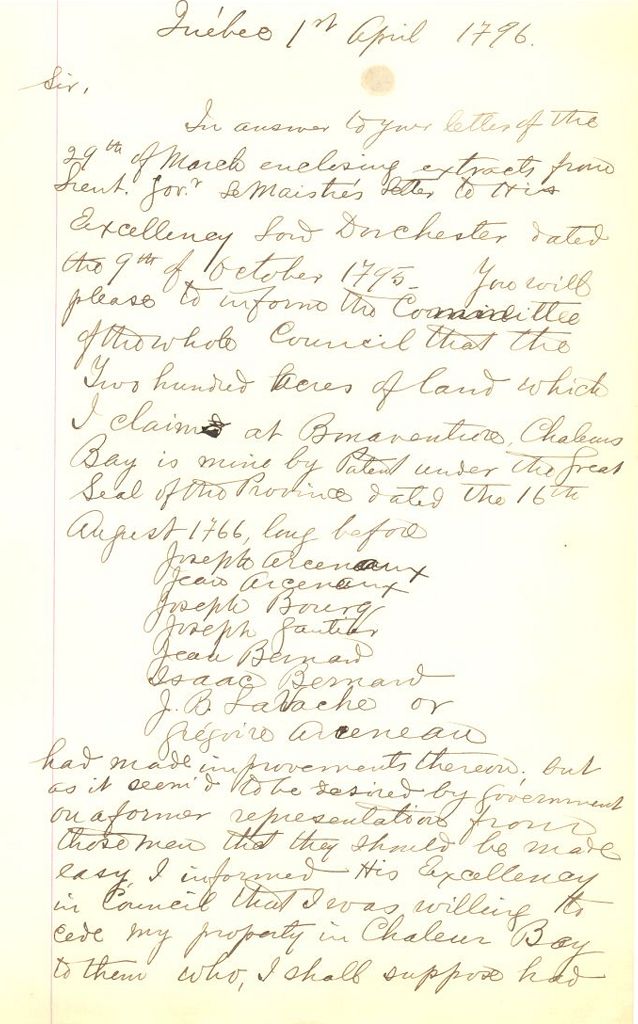 Québec 1st April 1796.
Sir,
In answer to your letter of the
29th of March enclosing extracts from
Lieut. Govr LeMaistre's letter to His
Excellency Lord Dorchester dated
the 9th of October 1795_ You will
please to inform the Committee
of the whole Council that the
Two hundred acres of land which
I claim at Bonaventure, Chaleurs
Bay is mine by Patent under the Great
Seal of the Province dated the 16th
August 1766, long before
Joseph Arceneaux
Jean Arceneaux
Joseph Bourg
Joseph Gautier
Jean Bernard
Isaac Bernard
J. B. LaVache or
Grégoire Arceneau
had made improvements thereon; but
as it seem'd to be desired by government
on a former representation from
those men that they should be made
easy I informed His Excellency
in Council that I was willing to
cede my property in Chaleur Bay
to them who, I shall suppose had